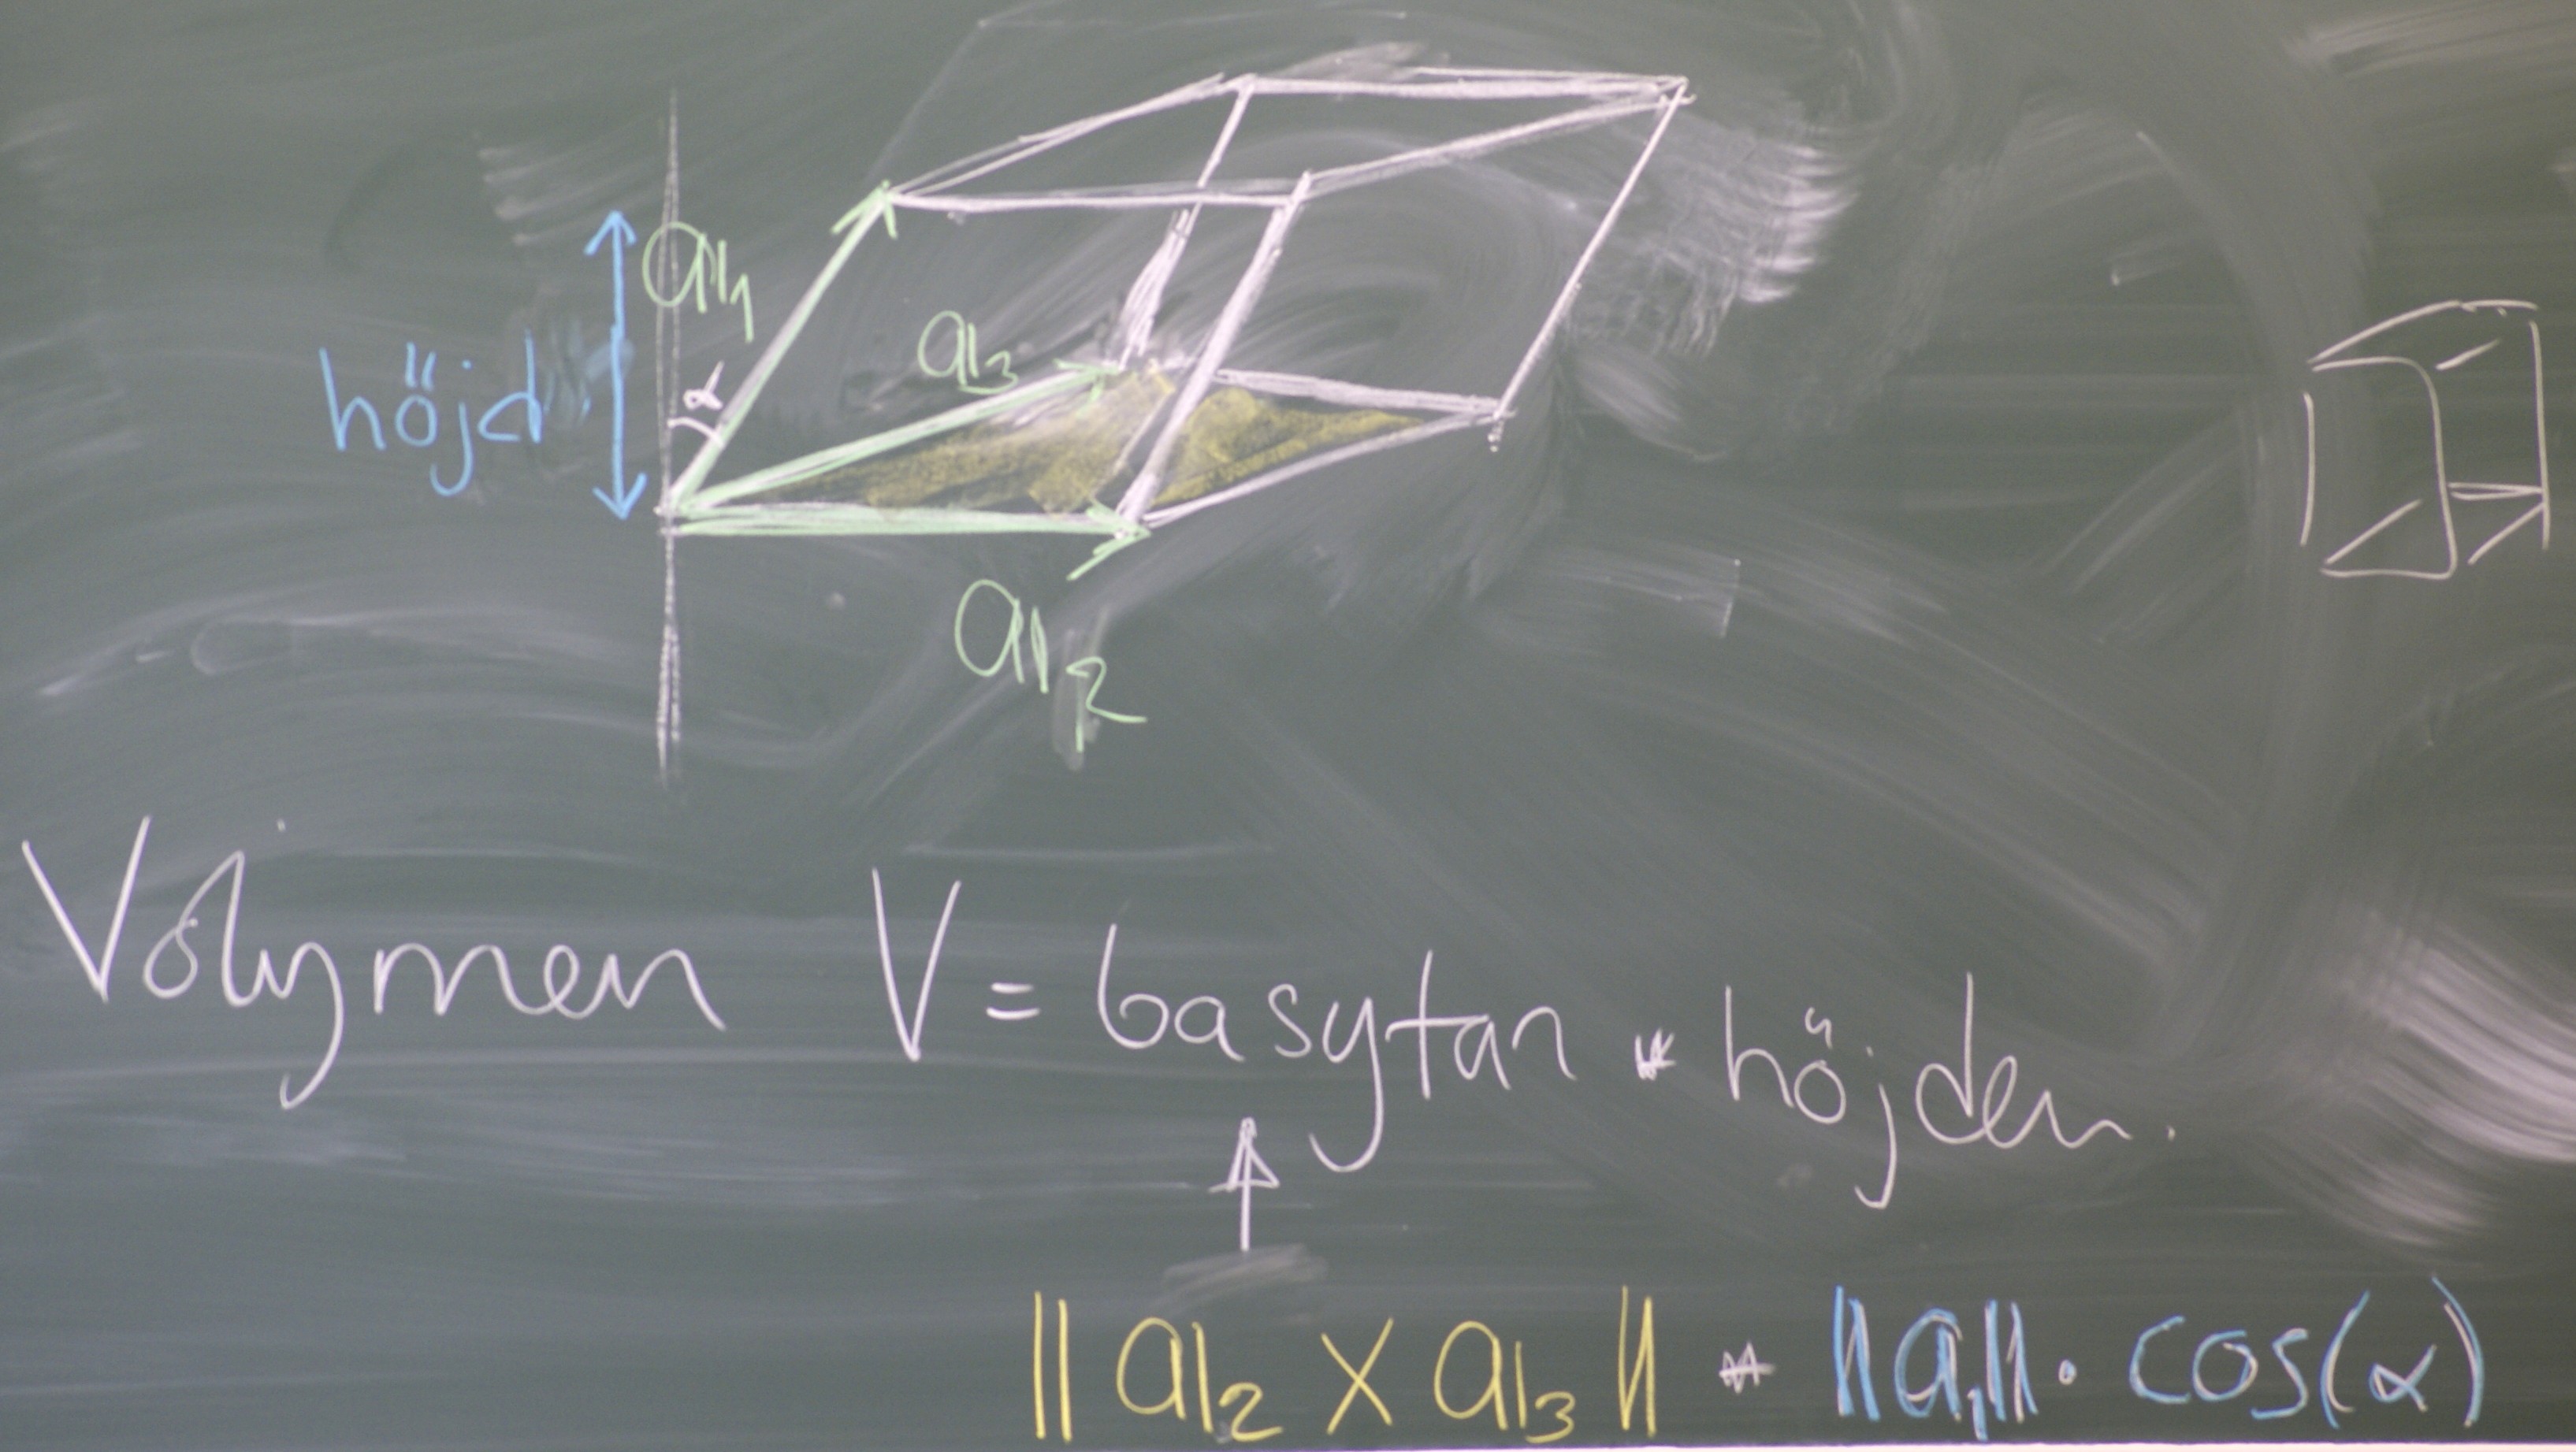 a₁
höjd
α
a₃
a₂
Volymen V = basytan * höjden.
‖ a₂ × a₃ ‖ * ‖a₁‖ · cos(α)